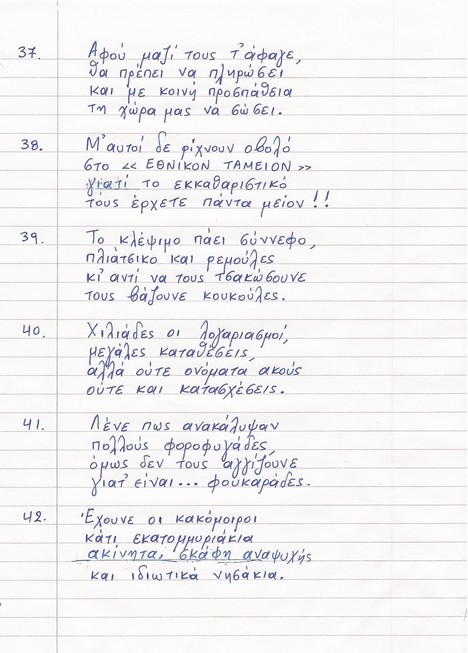 37. Αφού μαζί τους τ'άφαγε,
θα πρέπει να πληρώσει
και με κοινή προσπάθεια
τη χώρα μας να σώσει.
38. Μ'αυτοί δε ρίχνουν οβολό
στο << ΕΘΝΙΚΟΝ ΤΑΜΕΙΟΝ >>
γιατί το εκκαθαριστικό
τους έρχετε πάντα μείον !!
39. Το κλέψιμο πάει σύννεφο,
πλιάτσικο και ρεμούλες
κι'αντί να τους τσακώσουνε
τους βάζουνε κουκούλες.
40. Χιλιάδες οι λογαριασμοί,
μεγάλες καταθέσεις,
αλλά ούτε ονόματα ακούς
ούτε και κατασχέσεις.
41. Λένε πως ανακάλυψαν
πολλούς φοροφυγάδες,
όμως δεν τους αγγίζουνε
γιατ' είναι... φουκαράδες.
42. Έχουνε οι κακόμοιροι
κάτι εκατομμυριάκια
ακίνητα, σκάφη αναψυχής
και ιδιωτικά νησάκια.